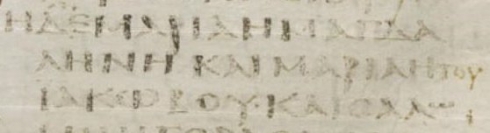 ΗΔΕΜΑΡΙΑΗΜΑΓΔΑ
ΛΗΝΗΚΑΙΜΑΡΙΑΗΤΟΥ
ΙΑΚΩΒΟΥ·ΚΑΙϹΑΛΩ